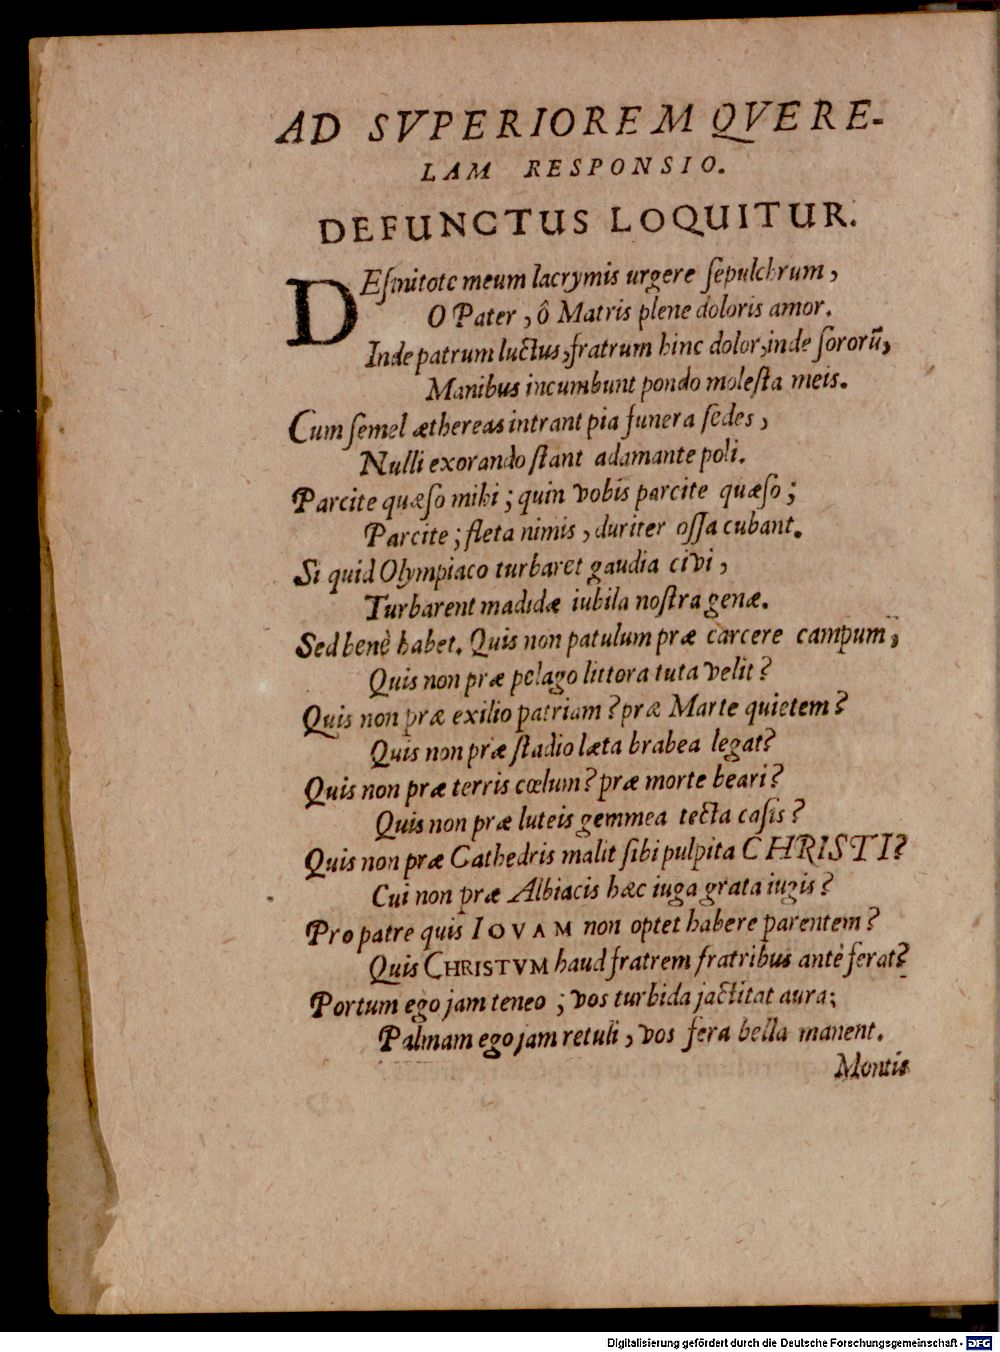 AD SVPERIOREM QVERE-
LAM RESPONSIO.
DEFUNCTUS LOQUITUR.
DEſinitote meum lacrymis urgere ſepulchrum,
O Pater, ô Matris plene doloris amor.
Inde patrum luctus, fratrum hinc dolor, inde ſororū,
Manibus incumbunt pondo moleſta meis.
Cum ſemel æthereas intrant pia funera ſedes,
Nulli exorando ſtant adamante poli.
Parcite quæſo mihi; quin vobis parcite quæſo;
Parcite; fleta nimis, duriter oſſa cubant.
Si quid Olympiaco turbaret gaudia civi,
Turbarent madidæ iubila noſtra genæ.
Sed benè habet. Quis non patulum præ carcere campum,
Quis non præ pelago littora tuta velit?
Quis non præ exilio patriam? præ Marte quietem?
Quis non præ ſtadio læta brabea legat?
Quis non præ terris cœlum? præ morte beari?
Quis non præ luteis gemmea tecta caſis?
Quis non præ Cathedris malit ſibi pulpita CHRISTI?
Cui non præ Albiacis hæc iuga grata iugis?
Pro patre quis IOVAM non optet habere parentem?
Quis CHRISTVM haud fratrem fratribus antè ferat?
Portum ego jam teneo; vos turbida jactitat aura;
Palmam ego jam retuli, vos fera bella manent.
Montis
Digitalisierung gefördert durch die Deutsche Forschungsgemeinschaft - DFG